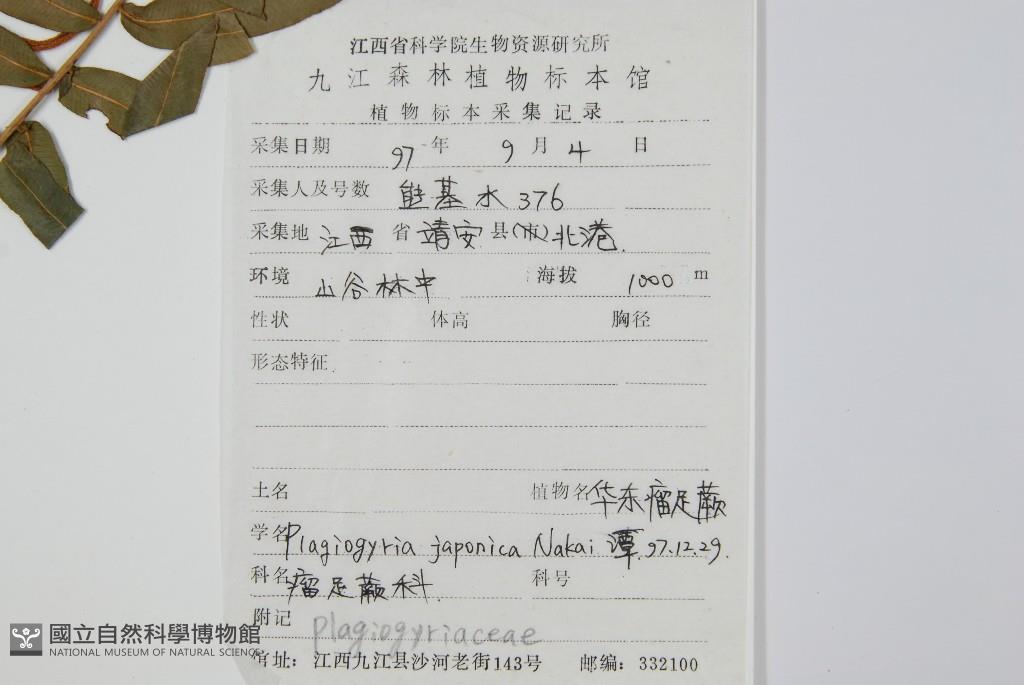 江西省科学院生物资源研究所
九江森林植物标本馆
植物标本采集记录
采集日期 97 年 9 月 4 日
采集人及号数 熊基水 376
采集地 江西 省 靖安 县(市) 北港.
环境 山谷林中 海拔 1000 m
性状 体高 胸径
形态特征
土名 植物名 华东瘤足蕨
学名 Plagiogyria japonica Nakai 谭 97.12.29.
科名 瘤足蕨科 科号
附记 Plagiogyriaceae
馆址：江西九江县沙河老街143号 邮编：332100
國立自然科學博物館
NATIONAL MUSEUM OF NATURAL SCIENCE